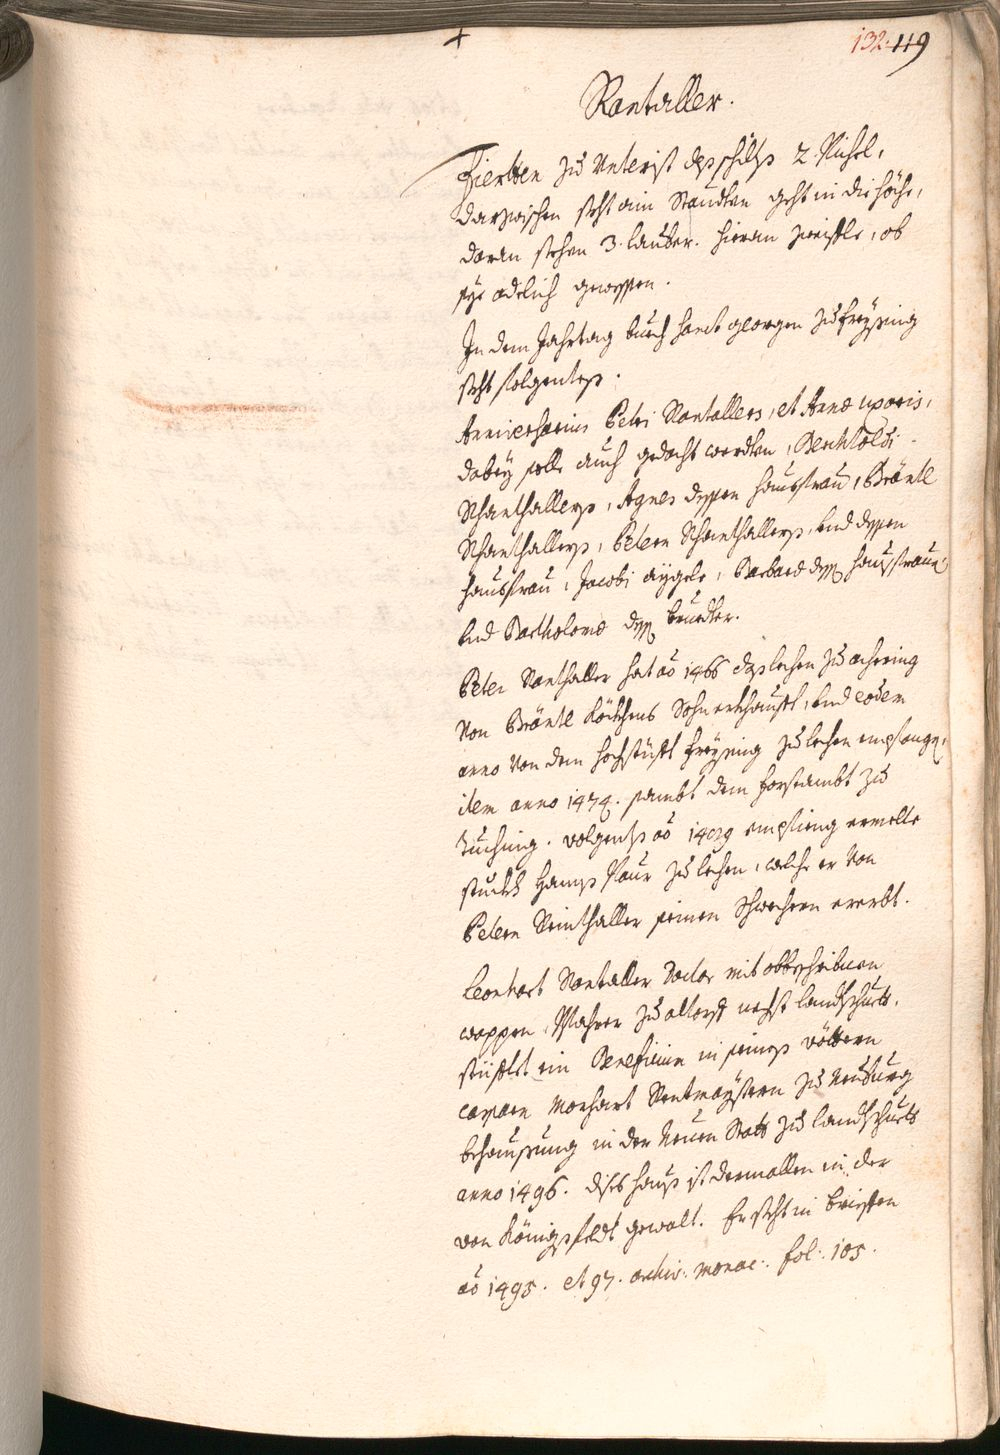 132. 119
Rantaller.
Fierten zu Unterist deß schilts 2. Pichel,
darzwischen steht ain Staudten geht in die höche,
daran stehen 3. lauber. hieran zweifle, ob
sye adelich gewessen.
In dem Jahrtag buech Sanct Georgen zu Freysing
steht folgentes.
Anniversarius Petri Rantallers, et Annæ uxoris,
dabey solle auch gedacht werdten, Berchtoldi
Schanthallers, Agnes dessen haussfrau, Bräntl
Schanthallers, Petern Schanthallers, und dessen
haussfrau, Jacobi aygele, Barbara dess haussfrauen
und Bartholome dess bruedter.
Peter Ranthaller hat ao 1466 das lechen zu achering
Von Bräntl Köckhens Sohn erkhaufft, und eodem
anno Von dem hochstüfft Freysing zu lechen empfangen,
item anno 1474. sambt dem forstambt zu
. volgents ao empfieng ermelte
stuckh Hanns Paur zu lechen, welche er Von
Petern Reinthaller seinen Schwechern ererbt.
Leonhart Rantaller Doctor mit obbeschribnen
wappen, Pfahrer zu altorf nechst landtshuett,
stüfftet ein Beneficium in seines vöttern
caspar Morhart Rentmaystern zu Neuburg
behaussung in der Neuen Statt zu landtshuett
anno 1496. dises hauss ist dermallen in der
von Königsfeldt gewalt. Er steht in brieffen
ao 1495. et 97. archiv: monac: fol: 105.